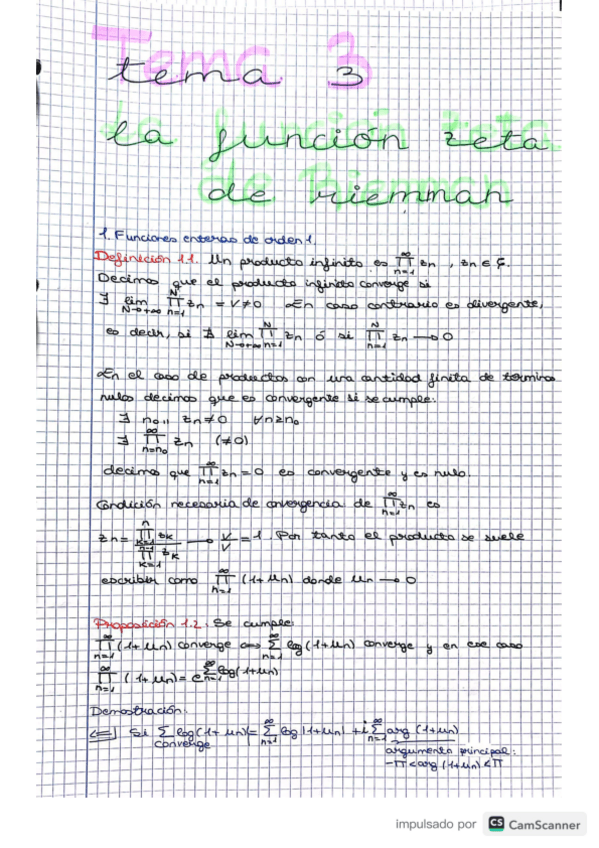 tema 3
la función zeta
de Riemman
1. Funciones enteras de orden 1.
Definición 1.1. Un producto infinito es ∏_{n=1}^{∞} zn , zn ∈ ℂ.
Decimos que el producto infinito converge si
∃ lim_{N→+∞} ∏_{n=1}^{N} zn = V ≠ 0 En caso contrario es divergente,
es decir, si ∄ lim_{N→+∞} ∏_{n=1}^{N} zn ó si ∏_{n=1}^{N} zn → 0
En el caso de productos con una cantidad finita de terminos
nulos decimos que es convergente si se cumple:
∃ n₀ ,, zn ≠ 0 ∀n ≥ n₀
∃ ∏_{n=n₀}^{∞} zn (≠0)
decimos que ∏_{n=1}^{∞} zn = 0 es convergente y es nulo.
Condición necesaria de convergencia de ∏_{n=1}^{∞} zn es
zn = ∏_{k=1}^{n} zk / ∏_{k=1}^{n-1} zk → V/V = 1. Por tanto el producto se suele
escribir como ∏_{n=1}^{∞} (1+un) donde un → 0
Proposición 1.2. Se cumple:
∏_{n=1}^{∞} (1+un) converge ⟺ ∑_{n=1}^{∞} log(1+un) converge y en ese caso
∏_{n=1}^{∞} (1+un) = e^{∑_{n=1}^{∞} log(1+un)}
Demostración:
⟸ Si ∑ log(1+un) = ∑_{n=1}^{∞} log|1+un| + i ∑_{n=1}^{∞} arg(1+un)
converge argumento principal:
-π < arg(1+un) < π
impulsado por CS CamScanner